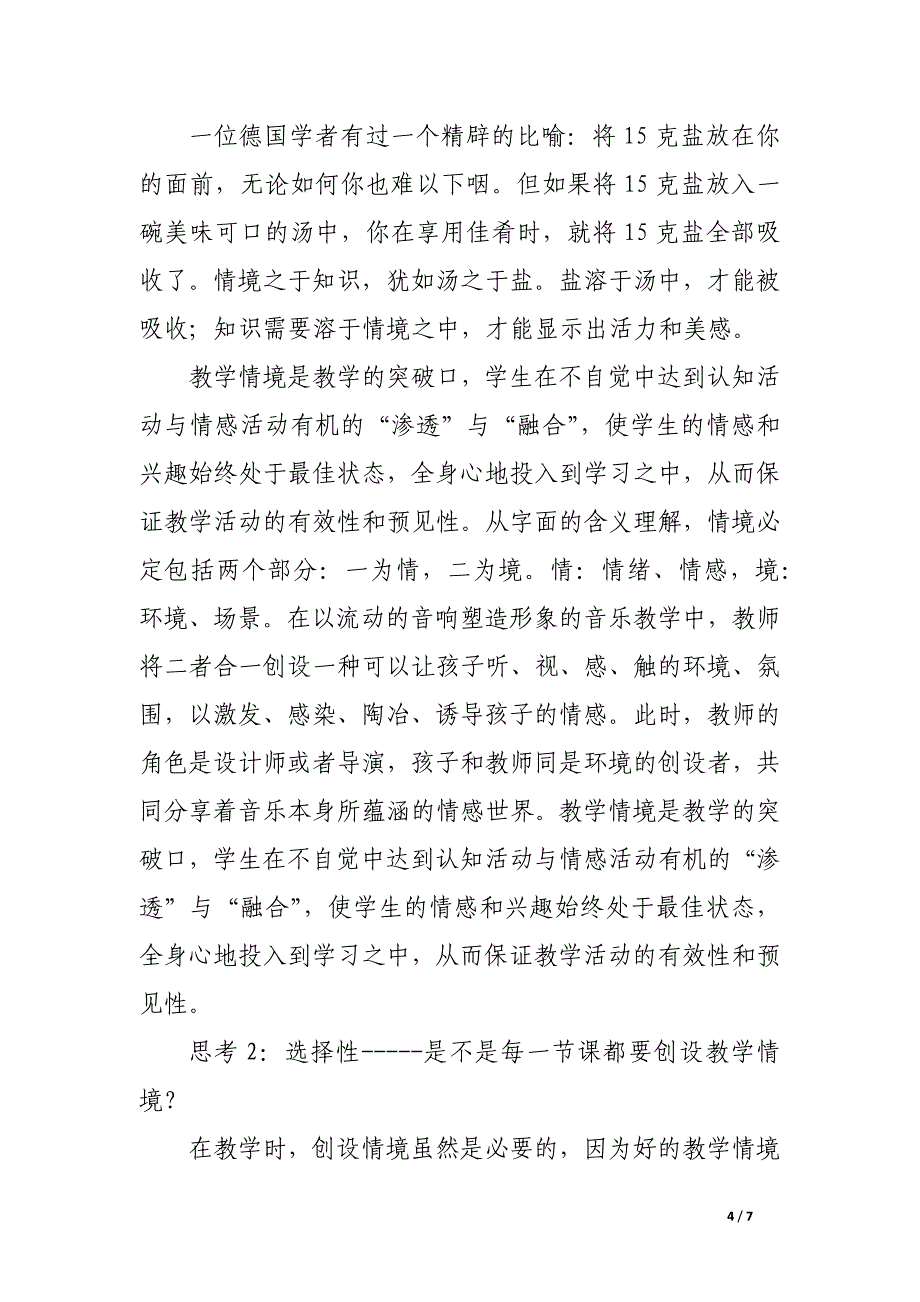 一位德国学者有过一个精辟的比喻：将 15 克盐放在你
的面前，无论如何你也难以下咽。但如果将 15 克盐放入一
碗美味可口的汤中，你在享用佳肴时，就将 15 克盐全部吸
收了。情境之于知识，犹如汤之于盐。盐溶于汤中，才能被
吸收；知识需要溶于情境之中，才能显示出活力和美感。
教学情境是教学的突破口，学生在不自觉中达到认知活
动与情感活动有机的“渗透”与“融合”，使学生的情感和
兴趣始终处于最佳状态，全身心地投入到学习之中，从而保
证教学活动的有效性和预见性。从字面的含义理解，情境必
定包括两个部分：一为情，二为境。情：情绪、情感，境：
环境、场景。在以流动的音响塑造形象的音乐教学中，教师
将二者合一创设一种可以让孩子听、视、感、触的环境、氛
围，以激发、感染、陶冶、诱导孩子的情感。此时，教师的
角色是设计师或者导演，孩子和教师同是环境的创设者，共
同分享着音乐本身所蕴涵的情感世界。教学情境是教学的突
破口，学生在不自觉中达到认知活动与情感活动有机的“渗
透”与“融合”，使学生的情感和兴趣始终处于最佳状态，
全身心地投入到学习之中，从而保证教学活动的有效性和预
见性。
思考 2：选择性-----是不是每一节课都要创设教学情
境？
在教学时，创设情境虽然是必要的，因为好的教学情境
4 / 7